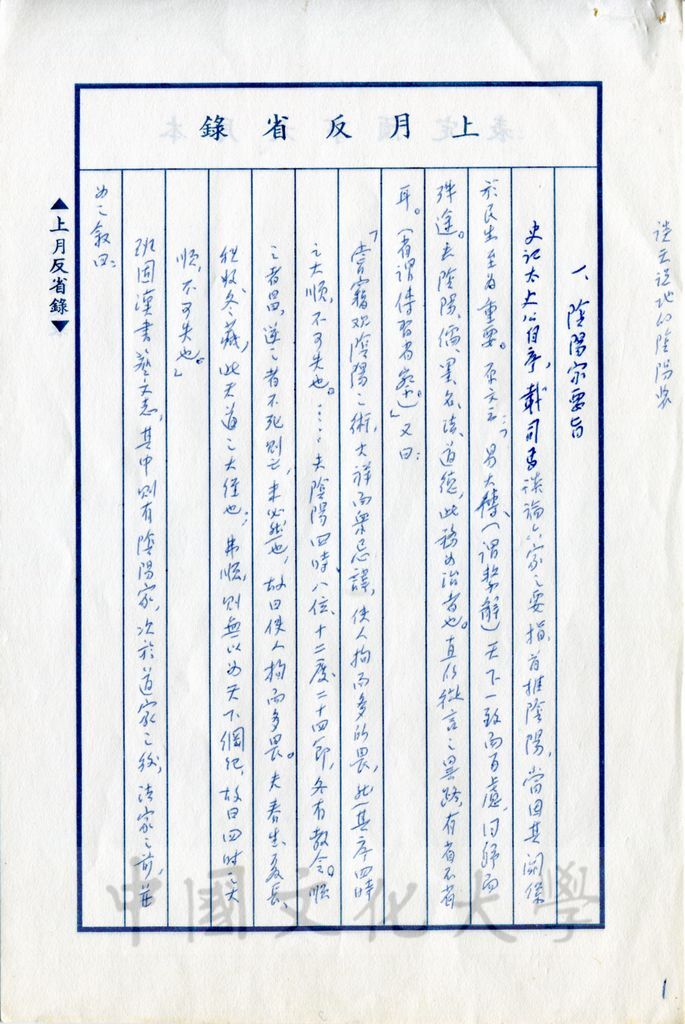 上月反省錄
談天說地的陰陽家
一、陰陽家要旨
史記太史公自序,載司馬談論六家之要指,首推陰陽,當因其關係
於民生至為重要。原文云:「易大傳(謂繫辭)天下一致而百慮,同歸而
殊途。夫陰陽、儒、墨、名、法、道德,此務為治者也。直所從言之異路,有省不省
耳。(省謂傳習省察也)」又曰:
「嘗竊觀陰陽之術,大祥而眾忌諱,使人拘而多所畏,然其序四時
之大順,不可失也。……夫陰陽四時、八位、十二度、二十四節,各有教令。順
之者昌,逆之者不死則亡,未必然也,故曰使人拘而多畏。夫春生、夏長、
秋收、冬藏,此天道之大經也,弗順,則無以為天下綱紀,故曰四時之大
順,不可失也。」
班固漢書藝文志,其中則有陰陽家,次於道家之後,法家之前,並
為之敘曰:
▲上月反省錄▼
中國文化大學
1